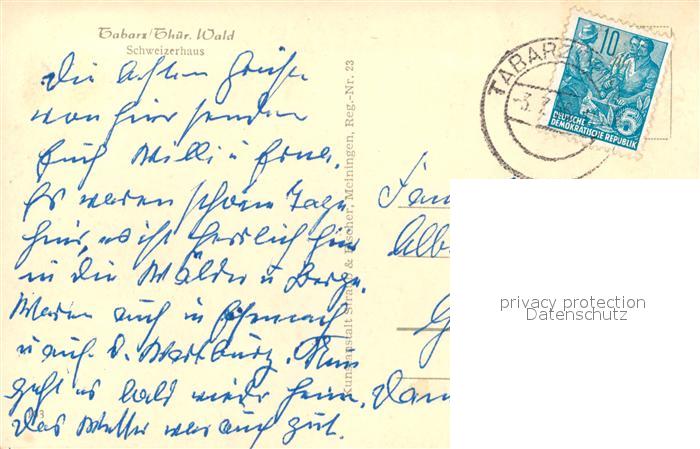 Tabarz/Thür. Wald
Schweizerhaus
Die besten Grüße
von hier senden
Euch Willi u Erna.
Es waren schöne Tage
hier, es ist herrlich hier
in die Wälder u Berge.
Waren auch in Eisenach
u auf d. Wartburg. Nun
geht es bald wieder heim.
Das Wetter war auch gut.
Kunstanstalt Straub & Fischer, Meiningen, Reg.-Nr. 23
TABARZ
10
5
DEUTSCHE
DEMOKRATISCHE REPUBLIK
Fam
Alb
privacy protection
Datenschutz